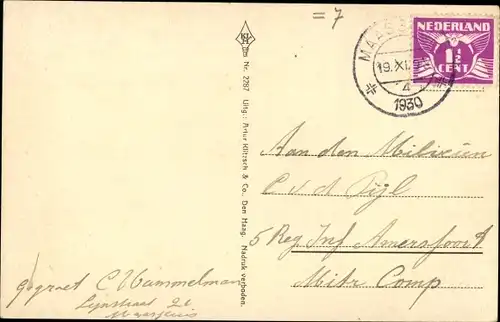 = 7
NEDERLAND
1½
CENT
MAASS
19.XI
4
1930
Nr. 2787 Uitg.: Artur Klitzsch & Co., Den Haag. Nadruk verboden.
Aan den Milicien
C v d Pijl
5 Reg Inf Amersfoort
Mitr Comp
gegroet C Hammelman
26